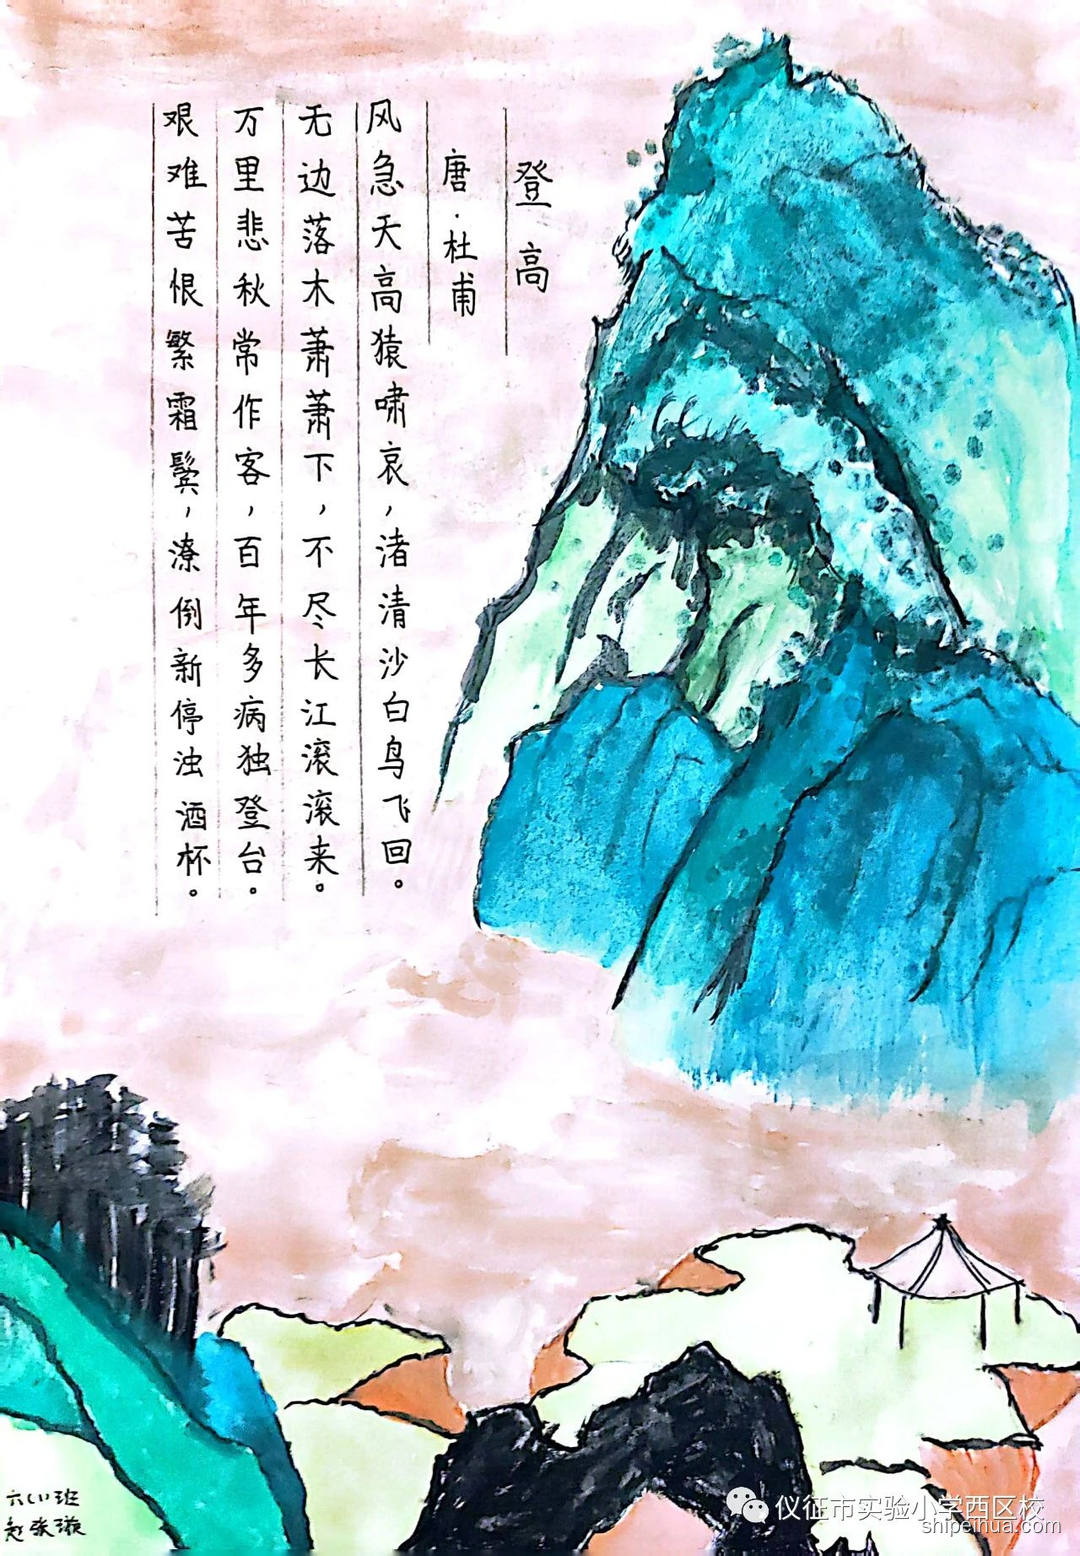 登高
唐·杜甫
风急天高猿啸哀，渚清沙白鸟飞回。
无边落木萧萧下，不尽长江滚滚来。
万里悲秋常作客，百年多病独登台。
艰难苦恨繁霜鬓，潦倒新停浊酒杯。
六(1)班
赵张璇
仪征市实验小学西区校
shipeihua.com